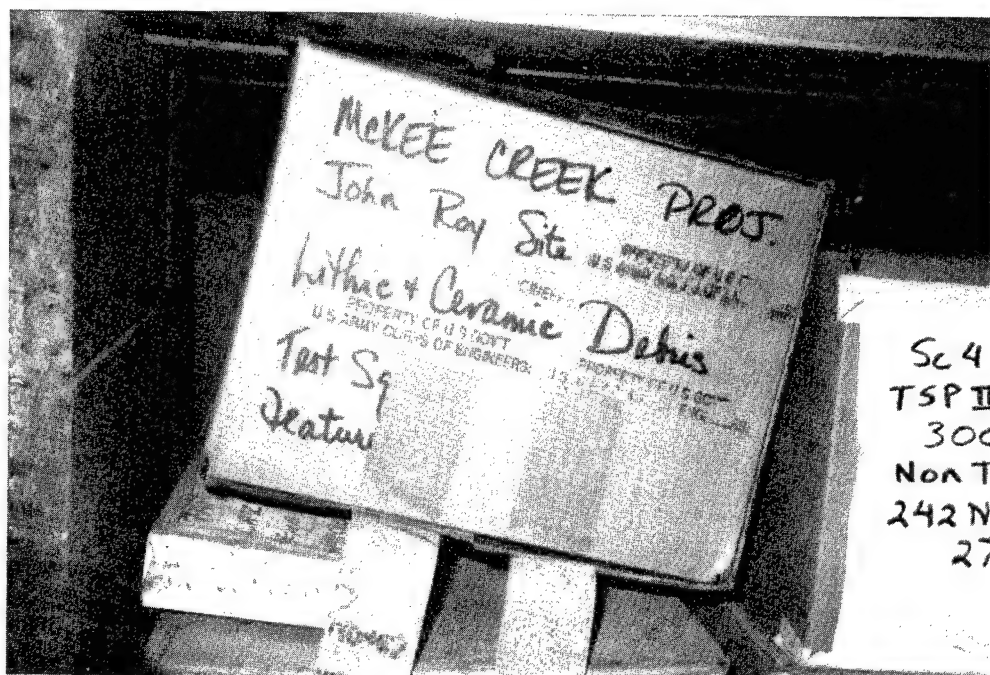 McKEE CREEK PROJ.
John Roy Site
Lithic + Ceramic Debris
PROPERTY OF U S GOVT
U S ARMY CORPS OF ENGINEERS
PROPERTY OF U S GOVT
Test Sq
Feature
Sc 4
TSP II
300
Non T
242 N
27